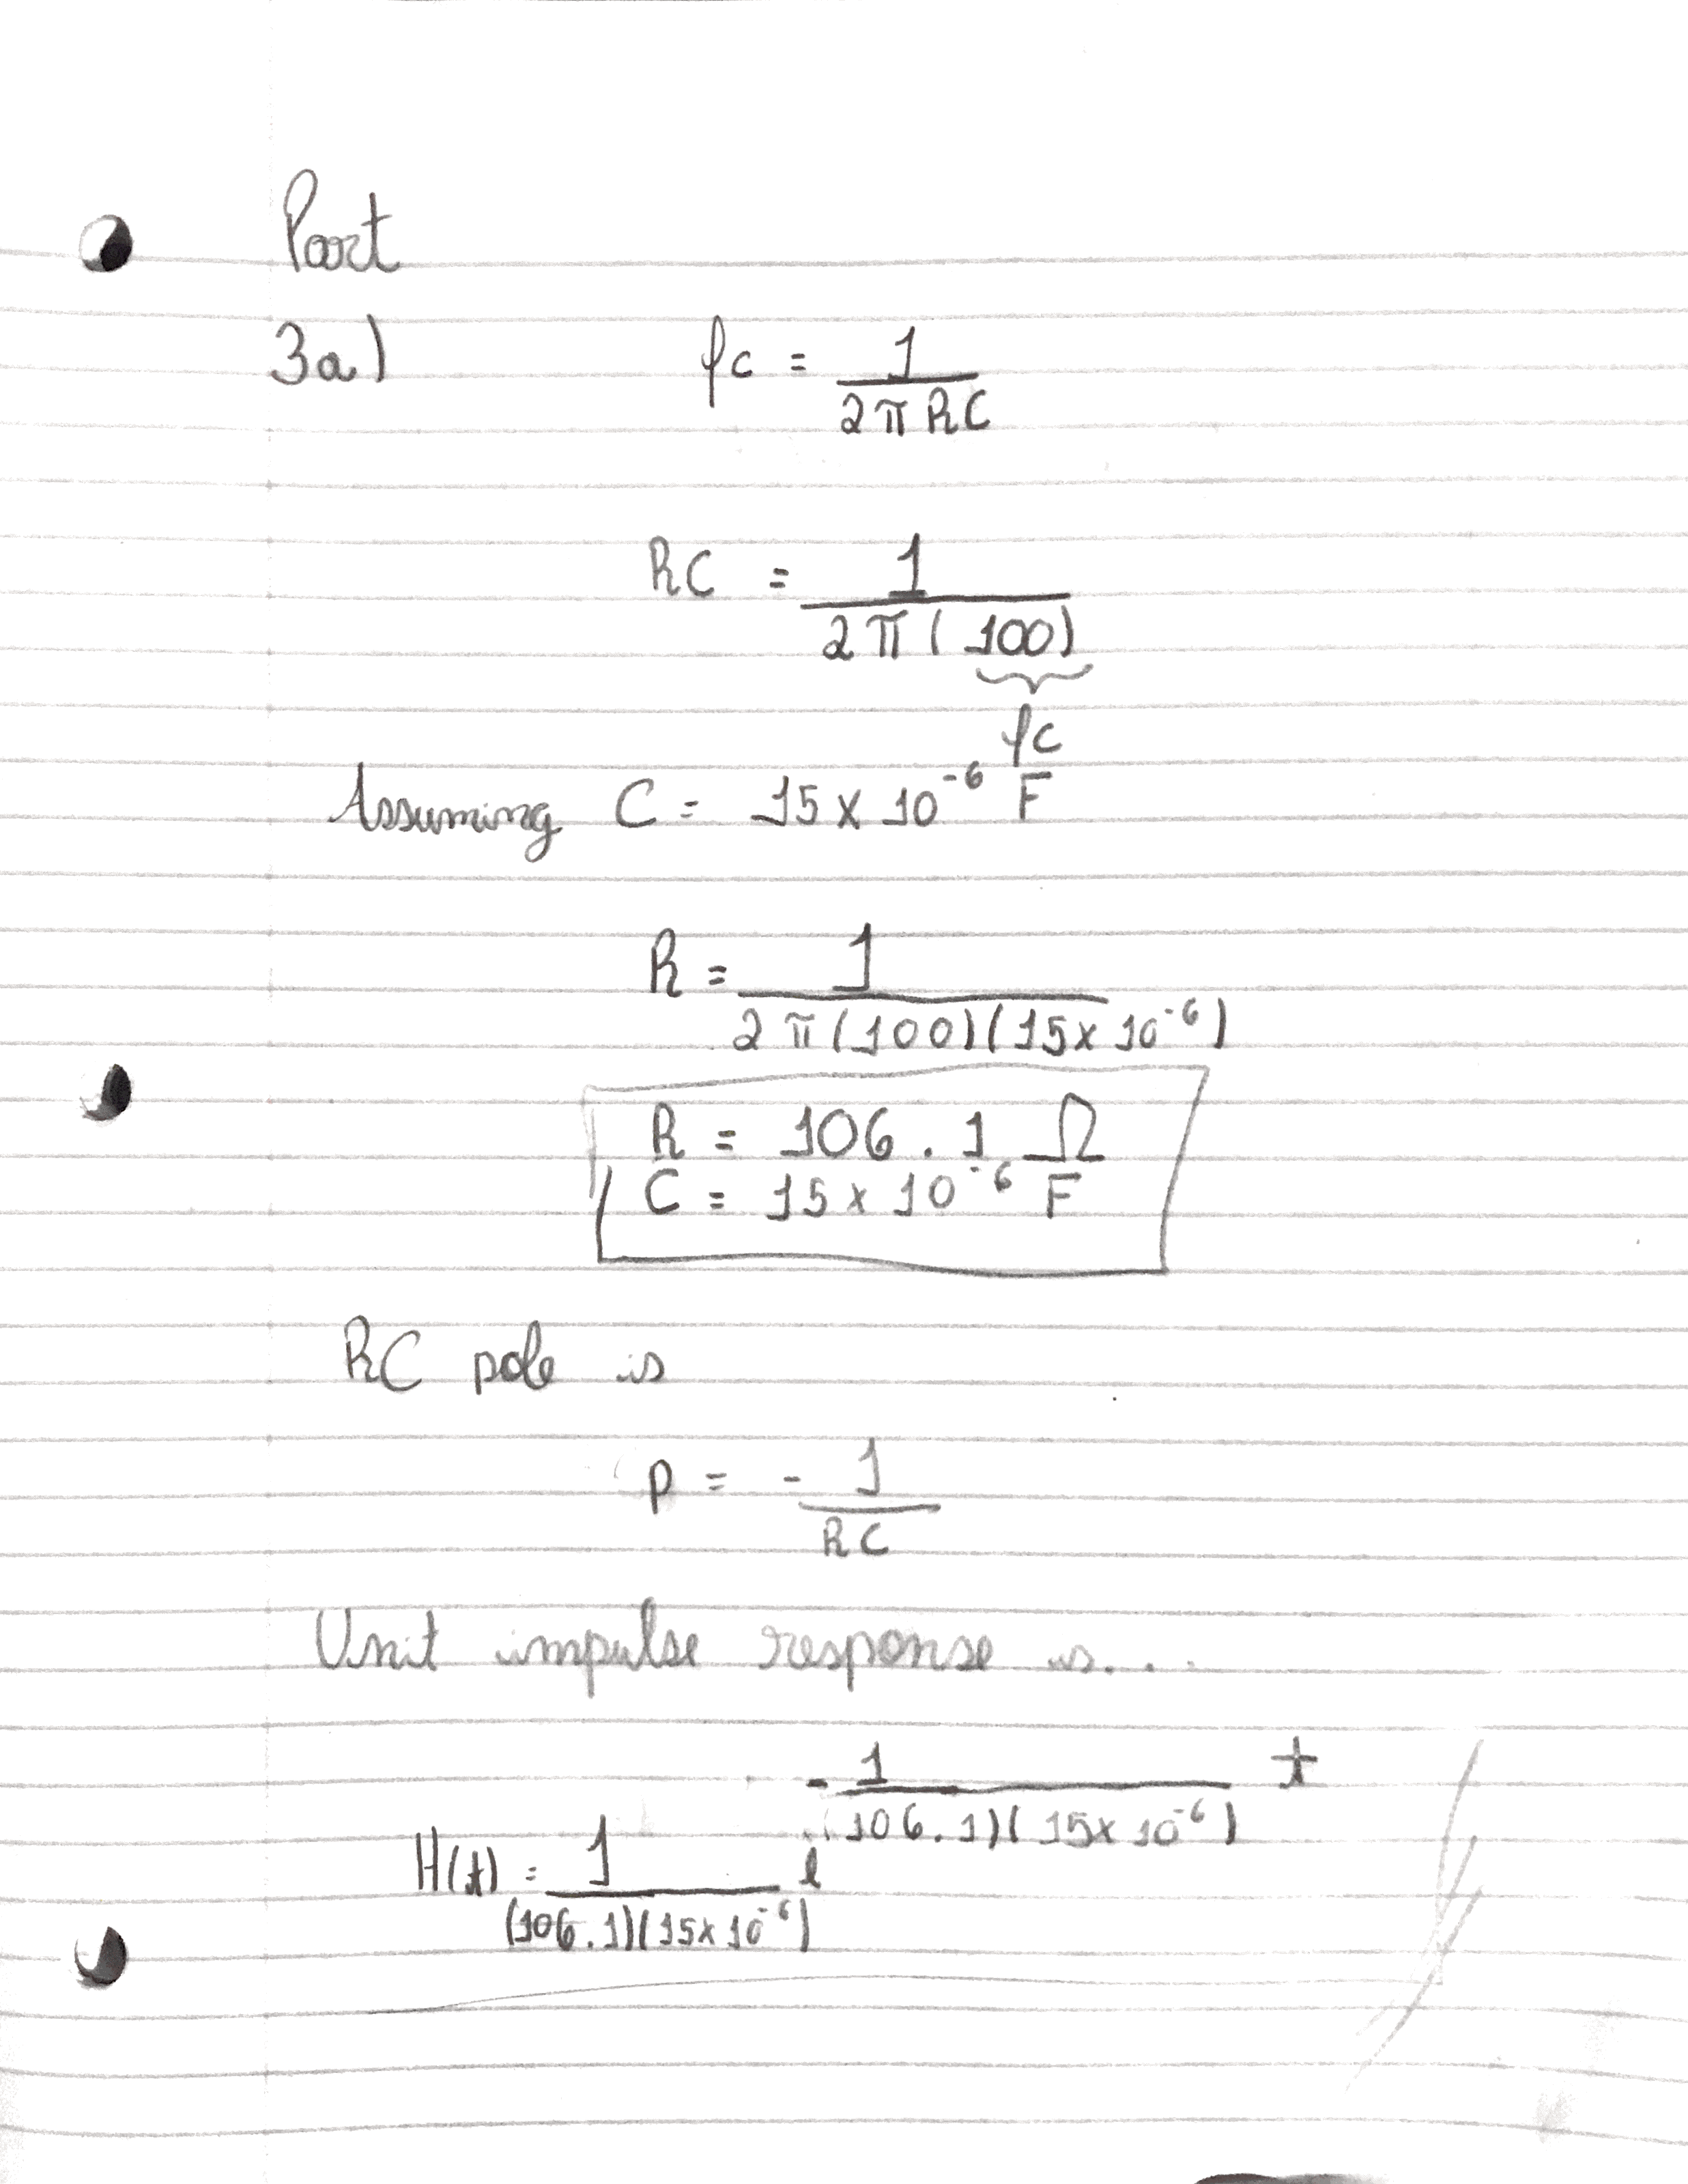 Part
3a) fc = 1 / 2πRC
RC = 1 / 2π(100)
fc
Assuming C = 15 x 10^-6 F
R = 1 / 2π(100)(15x10^-6)
R = 106.1 Ω
C = 15 x 10^-6 F
RC pole is
p = - 1 / RC
Unit impulse response is...
H(t) = 1 / (106.1)(15x10^-6) e^(- 1 / (106.1)(15x10^-6) t)